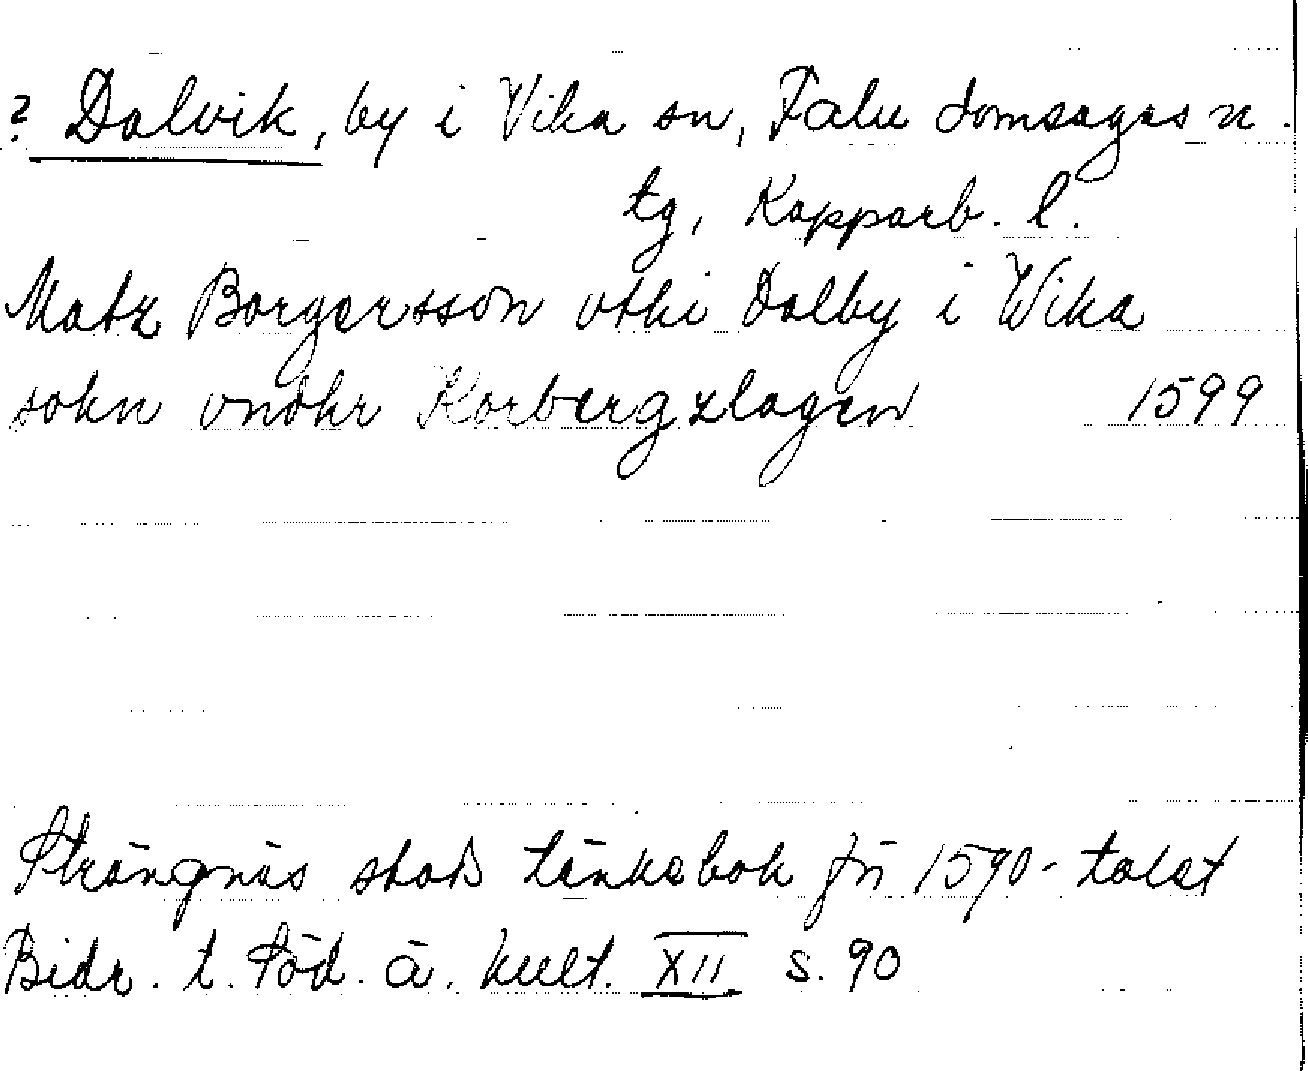 ? Dalvik, by i Vika sn, Falu domsagas n.
tg, Kopparb. l.
Matz Borgersson vthi Dalby i Wika
sokn vndhr Korbergzlagen 1599
Strängnäs stads tänkebok fr 1590-talet
Bidr. t. Söd. ä. kult. XII s. 90